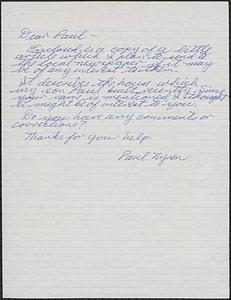 Dear Paul -
Enclosed is a copy of a little
article which I plan to send to
the local newspaper as it may
be of any interest to them.
It describes the house which
my son Paul built recently. Since
your name is mentioned I thought
it might be of interest to you.
Do you have any comments or
corrections?
Thanks for your help.
Paul